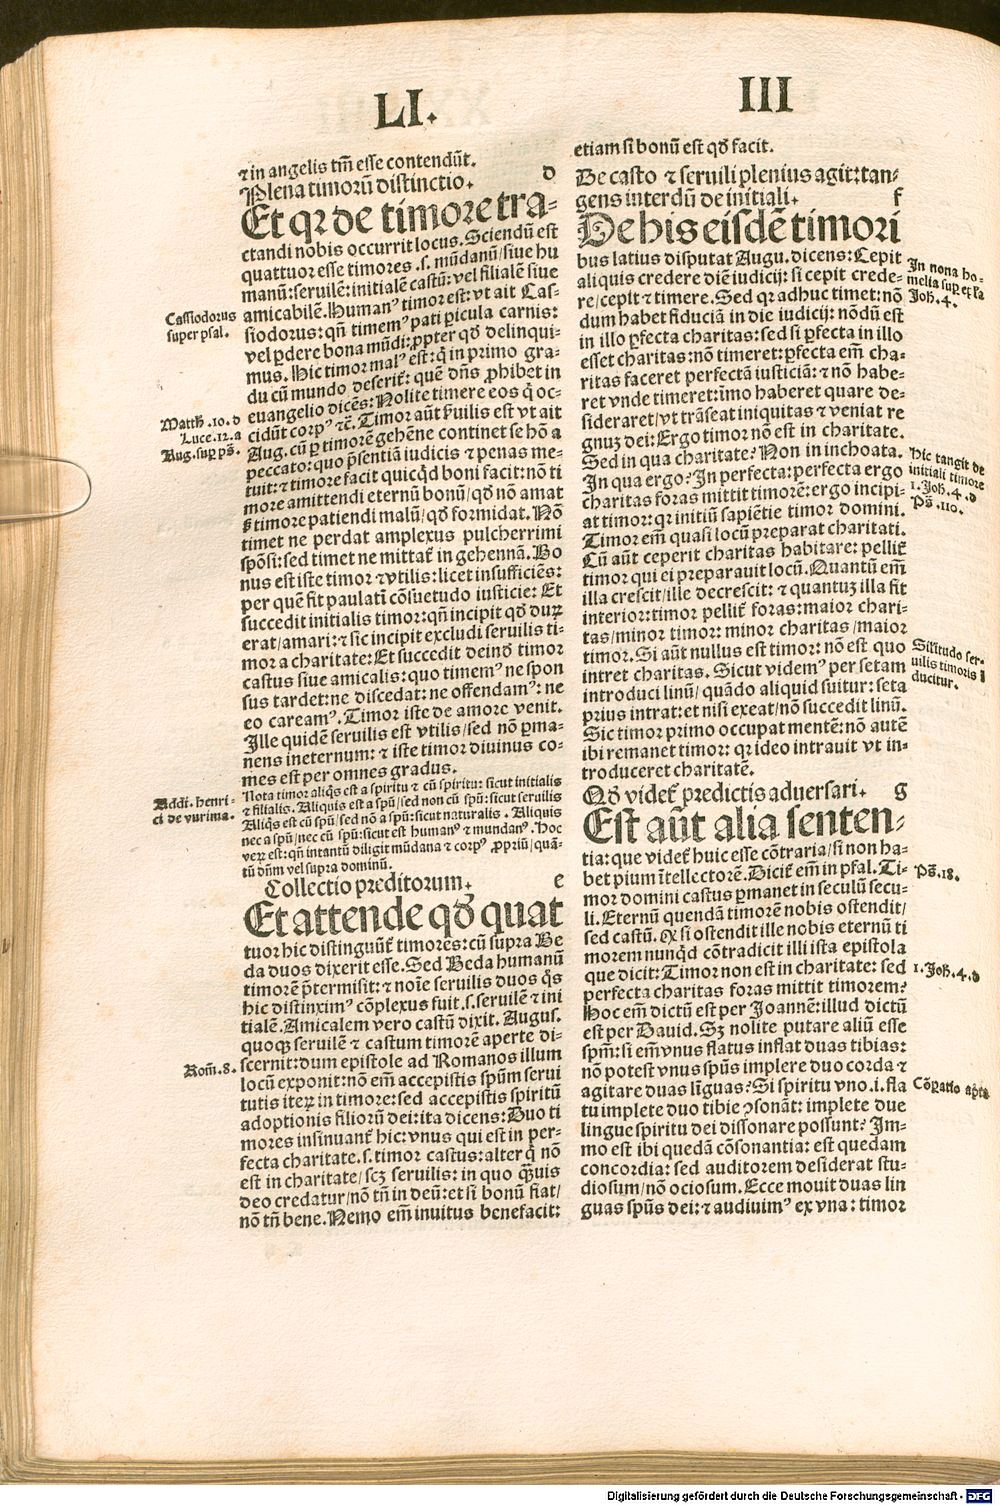 LI.
III
⁊ in angelis tm̄ esse contendūt.
Plena timorū distinctio. d
Et qꝛ de timore tra-
ctandi nobis occurrit locus. Sciendū est
quattuor esse timores .s. mūdanū/siue hu
manū: seruilē: initialē castū: vel filialē siue
amicabilē. Humanꝰ timor est: vt ait Cas-
siodorus: qn̄ timemꝰ pati ꝑicula carnis:
vel ꝑdere bona mūdi: ꝓpter qd̄ delinqui-
mus. Hic timor malꝰ est: q̄ in primo gra-
du cū mundo deserit᷑: quē dn̄s ꝓhibet in
euangelio dicēs: Nolite timere eos q̄ oc-
cidūt corpꝰ ⁊c̄. Timor aūt ẜuilis est vt ait
Aug. cū ꝑ timorē gehēne continet se hō a
peccato: quo p̄sentiā iudicis ⁊ penas me-
tuit: ⁊ timore facit quicq̄d boni facit: nō ti
more amittendi eternū bonū/qd̄ nō amat
ẜ timore patiendi malū/ qd̄ formidat. Nō
timet ne perdat amplexus pulcherrimi
spōsi: sed timet ne mittat᷑ in gehennā. Bo
nus est iste timor ⁊ vtilis: licet insufficiēs:
per quē fit paulati cōsuetudo iusticie: Et
succedit initialis timor: qn̄ incipit qd̄ duꝝ
erat/amari: ⁊ sic incipit excludi seruilis ti-
mor a charitate: Et succedit deind̄ timor
castus siue amicalis: quo timemꝰ ne spon
sus tardet: ne discedat: ne offendamꝰ: ne
eo careamꝰ. Timor iste de amore venit.
Ille quidē seruilis est vtilis/sed nō ꝑma-
nens ineternum: ⁊ iste timor diuinus co-
mes est per omnes gradus.
Nota timor aliq̄s est a spiritu ⁊ cū spiritu: sicut initialis
⁊ filialis. Aliquis est a spū/sed non cū spū: sicut seruilis
Aliq̄s est cū spū/sed nō a spū: sicut naturalis. Aliquis
nec a spū/nec cū spū: sicut est humanꝰ ⁊ mundanꝰ. Hoc
veꝝ est: qn̄ intantū diligit mūdana ⁊ corpꝰ ꝓpriū/quā-
tū dn̄m vel supra dominū.
Collectio preditorum. e
Et attende qd̄ quat
tuor hic distinguūt᷑ timores: cū supra Be
da duos dixerit esse. Sed Beda humanū
timorē p̄termisit: ⁊ noīe seruilis duos q̄s
hic distinximꝰ cōplexus fuit .s. seruilē ⁊ ini
tialē. Amicalem vero castū dixit. Augus.
quoqꝫ seruilē ⁊ castum timorē aperte di-
scernit: dum epistole ad Romanos illum
locū exponit: nō em̄ accepistis spūm serui
tutis iteꝝ in timore: sed accepistis spiritū
adoptionis filiorū dei: ita dicens: Duo ti
mores insinuant᷑ hic: vnus qui est in per-
fecta charitate .s. timor castus: alter q̄ nō
est in charitate/ scꝫ seruilis: in quo q̄uis
deo credatur/nō tn̄ in deū: et si bonū fiat/
nō tn̄ bene. Nemo em̄ inuitus benefacit:
Cassiodorus
super psal.
Matth̄ .10. d
Luce .12. a
Aug. suꝑ ps̄.
Addi. henri-
ci de vurima.
Rom̄. 8.
etiam si bonū est qd̄ facit.
De casto ⁊ seruili plenius agit: tan-
gens interdū de initiali. f
De his eisdē timori
bus latius disputat Augu. dicens: Cepit
aliquis credere diē iudicij: si cepit crede-
re/cepit ⁊ timere. Sed qꝛ adhuc timet: nō
dum habet fiduciā in die iudicij: nōdū est
in illo ꝑfecta charitas: sed si ꝑfecta in illo
esset charitas: nō timeret: ꝑfecta em̄ cha-
ritas faceret perfectā iusticiā: ⁊ nō habe-
ret vnde timeret: īmo haberet quare de-
sideraret/vt trāseat iniquitas ⁊ veniat re
gnuꝫ dei: Ergo timor nō est in charitate.
Sed in qua charitate? Non in inchoata.
In qua ergo? In perfecta: perfecta ergo
charitas foras mittit timorē: ergo incipi-
at timor: qꝛ initiū sapiētie timor domini.
Timor em̄ quasi locū preparat charitati.
Cū aūt ceperit charitas habitare: pellit᷑
timor qui ei preparauit locū. Quantū em̄
illa crescit/ille decrescit: ⁊ quantuꝫ illa fit
interior: timor pellit᷑ foras: maior chari-
tas/minor timor: minor charitas/maior
timor. Si aūt nullus est timor: nō est quo
intret charitas. Sicut videmꝰ per setam
introduci linū/ quādo aliquid suitur: seta
prius intrat: et nisi exeat/nō succedit linū.
Sic timor primo occupat mentē: nō autē
ibi remanet timor: qꝛ ideo intrauit vt in-
troduceret charitatē.
Qd̄ videt᷑ predictis aduersari. g
Est aūt alia senten-
tia: que videt᷑ huic esse cōtraria/si non ha-
bet pium ītellectorē. Dicit᷑ em̄ in psal. Ti-
mor domini castus ꝑmanet in seculū secu-
li. Eternū quendā timorē nobis ostendit/
sed castū. Qꝛ si ostendit ille nobis eternū ti
morem nunqd̄ cōtradicit illi ista epistola
que dicit: Timor non est in charitate: sed
perfecta charitas foras mittit timorem?
Hoc em̄ dictū est per Joannē: illud dictū
est per Dauid. Sꝫ nolite putare aliū esse
spm̄: si em̄ vnus flatus inflat duas tibias:
nō potest vnus spūs implere duo corda ⁊
agitare duas līguas? Si spiritu vno .i. fla
tu implete duo tibie ꝯsonāt: implete due
lingue spiritu dei dissonare possunt? Im-
mo est ibi quedā cōsonantia: est quedam
concordia: sed auditorem desiderat stu-
diosum/nō ociosum. Ecce mouit duas lin
guas spūs dei: ⁊ audiuimꝰ ex vna: timor
In nona ho-
melia suꝑ
Joh̄. 4.
Hic tangit de
initiali timore
1. Joh̄. 4. d
Ps̄. 110.
Sil̄itudo ser-
uilis timoris
ducitur.
Ps̄. 18.
1. Joh̄. 4. d
Cōꝑatio apta
Digitalisierung gefördert durch die Deutsche Forschungsgemeinschaft - DFG